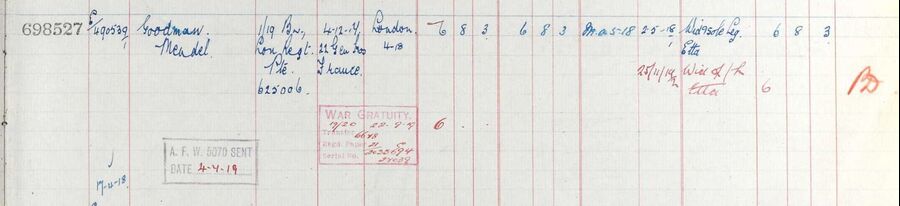 698527 E/490539 Goodman, 1/19 Bn, 4-12-17 London 6 8 3 6 8 3 M.a 5-18 2-5-18 Wid Sole Leg. 6 8 3
Mendel Lon. Regt. 22 Gen 4-18 Etta
Pte. France. 25/11/19 Wid
625006. Etta 6
WAR GRATUITY.
22-9-19 6
Transfer 6648
Regd. Paper
Serial No.
A. F. W. 5070 SENT
DATE 4-4-19
17-4-18.